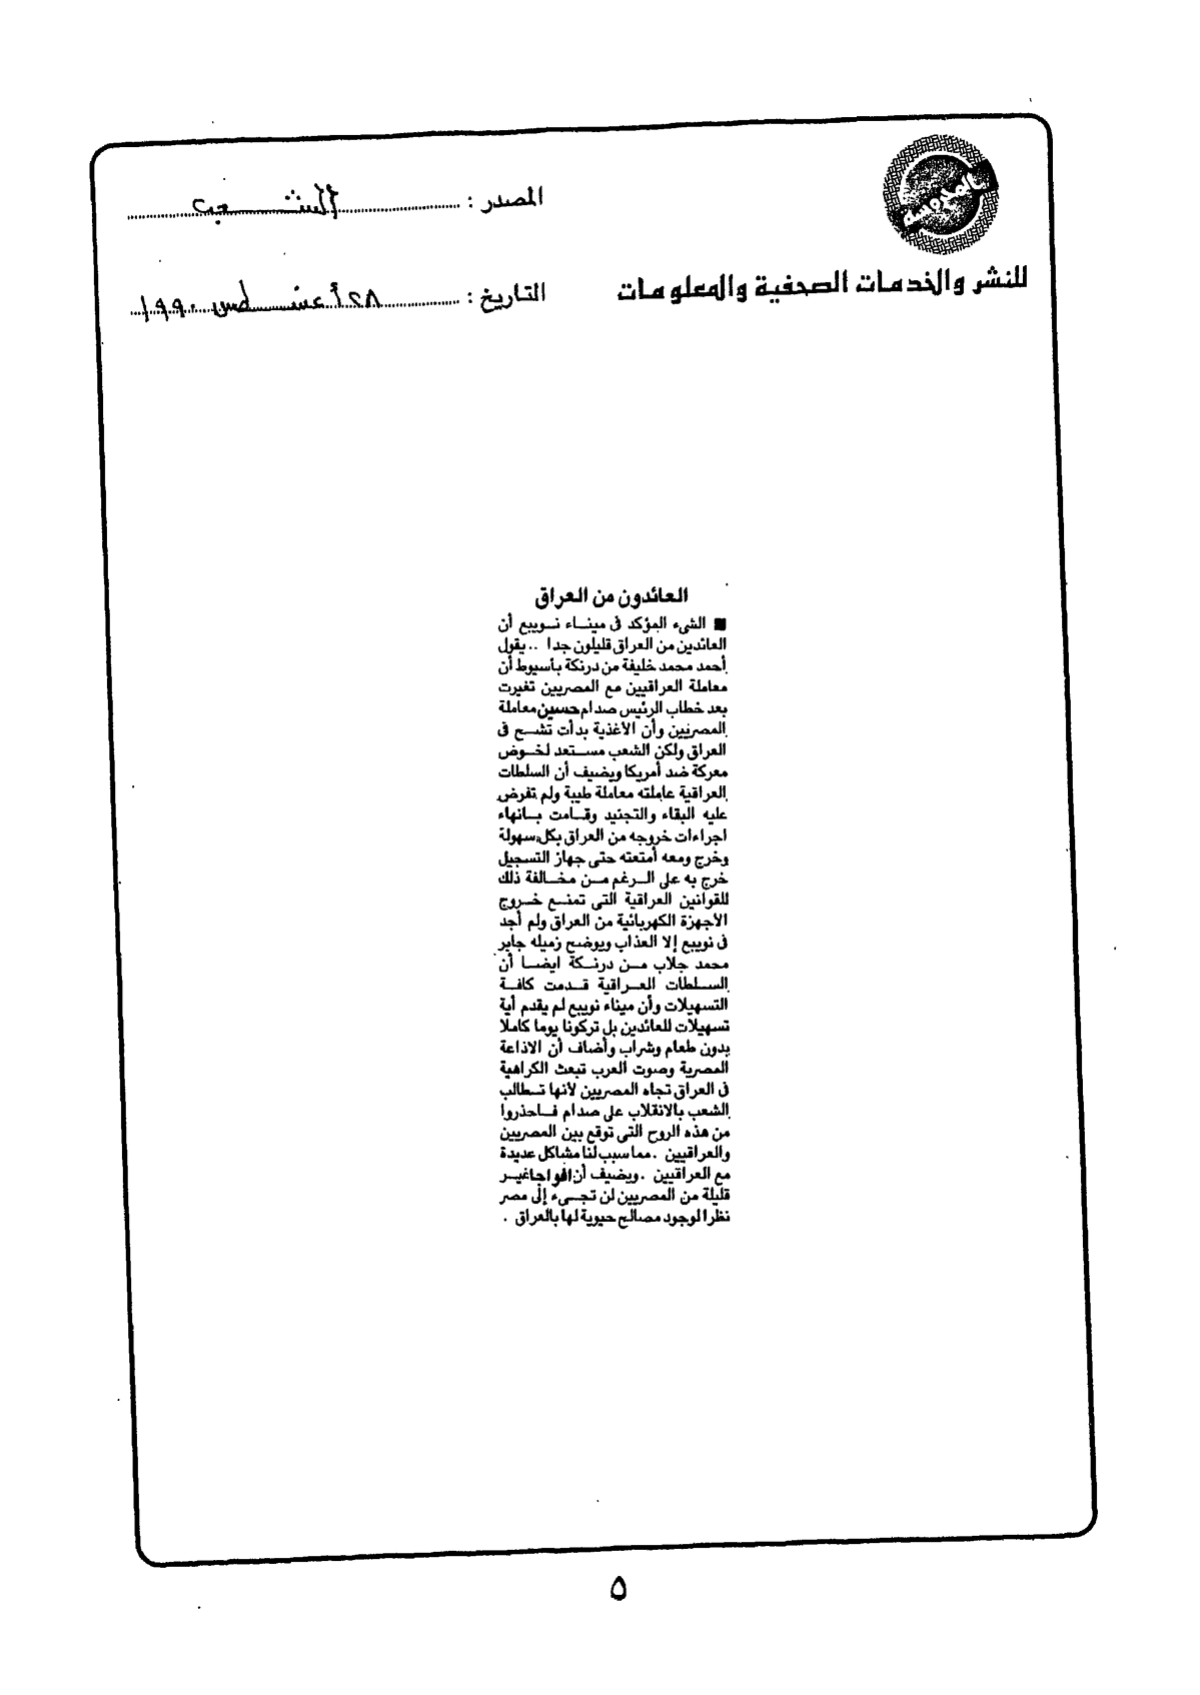 المحروسة
للنشر والخدمات الصحفية والمعلومات
المصدر : الشعب
التاريخ : ٢٨ أغسطس ١٩٩٠
العائدون من العراق
■ الشىء المؤكد فى مينـاء نـويبع أن
العائدين من العراق قليلون جدا .. يقول
أحمد محمد خليفة من درنكة بأسيوط أن
معاملة العراقيين مع المصريين تغيرت
بعد خطاب الرئيس صدام حسين معاملة
المصريين وأن الأغذية بدأت تشـح فى
العراق ولكن الشعب مستعد لخـوض
معركة ضد أمريكا ويضيف أن السلطات
العراقية عاملته معاملة طيبة ولم تفرض
عليه البقاء والتجنيد وقـامت بـانهاء
اجراءات خروجه من العراق بكل سهولة
وخرج ومعه أمتعته حتى جهاز التسجيل
خرج به على الـرغم مـن مخـالفة ذلك
للقوانين العراقية التى تمنـع خـروج
الأجهزة الكهربائية من العراق ولم أجد
فى نويبع إلا العذاب ويوضح زميله جابر
محمد جلاب مـن درنـكة ايضـا أن
السـلطات العـراقية قـدمت كافـة
التسهيلات وأن ميناء نويبع لم يقدم أية
تسهيلات للعائدين بل تركونا يوما كاملا
بدون طعام وشراب وأضاف أن الاذاعة
المصرية وصوت العرب تبعث الكراهية
فى العراق تجاه المصريين لأنها تـطالب
الشعب بالانقلاب على صدام فـاحذروا
من هذه الروح التى توقع بين المصريين
والعراقيين . مما سبب لنا مشاكل عديدة
مع العراقيين . ويضيف أن افواجا غيـر
قليلة من المصريين لن تجـىء إلى مصر
نظرا لوجود مصالح حيوية لها بالعراق .
٥